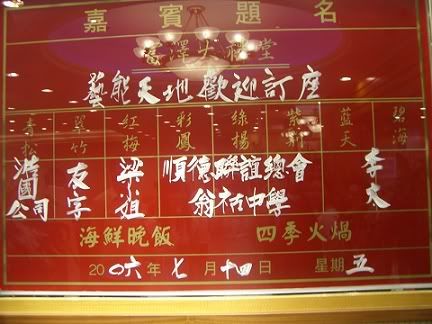 嘉賓題名
富澤大禮堂
藝能天地歡迎訂座
青松 翠竹 紅梅 彩鳳 綠楊 紫荊 藍天 碧海
國公司 友字 梁小姐 順德聯誼總會 李大
翁祐中學
海鮮晚飯 四季火鍋
2006年七月十四日 星期五